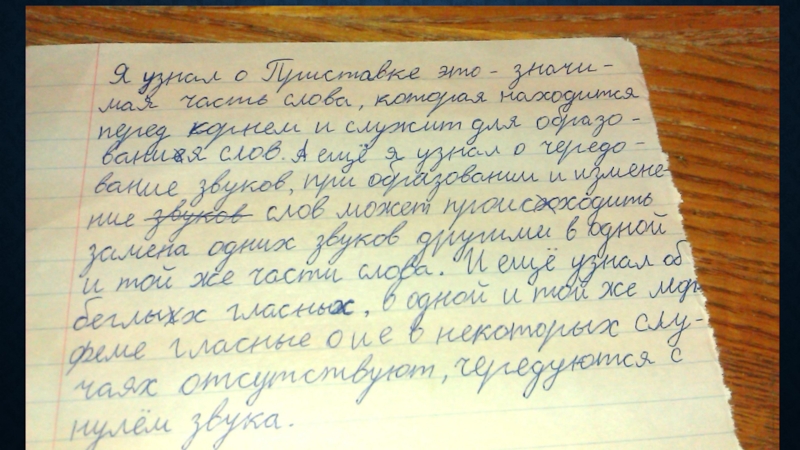 Я узнал о Приставке это - значи-
мая часть слова, которая находится
перед корнем и служит для образо-
вания слов. А ещё я узнал о чередо-
вание звуков, при образовании и измене-
ние звуков слов может происходить
замена одних звуков другими в одной
и той же части слова. И ещё узнал об
беглых гласных, в одной и той же мор-
феме гласные о и е в некоторых слу-
чаях отсутствуют, чередуются с
нулём звука.